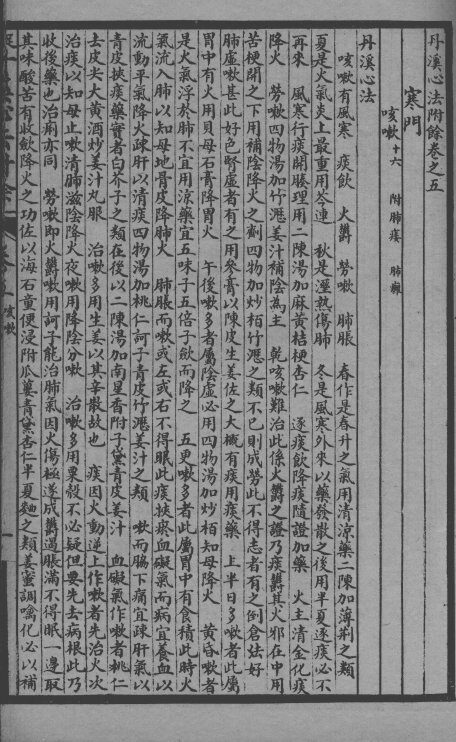 丹溪心法附餘卷之五
寒門
咳嗽十六 附肺痿 肺癰
丹溪心法
咳嗽有風寒 痰飲 火鬱 勞嗽 肺脹 春作是春升之氣用清涼藥二陳加薄荊之類
夏是火氣炎上最重用芩連 秋是濕熱傷肺 冬是風寒外來以藥發散之後用半夏逐痰必不
再來 風寒行痰開腠理用二陳湯加麻黃桔梗杏仁 逐痰飲降痰隨證加藥 火主清金化痰
降火 勞嗽四物湯加竹瀝姜汁補陰為主 乾咳嗽難治此係火鬱之證乃痰鬱其火邪在中用
苦梗開之下用補陰降火之劑四物加炒柏竹瀝之類不已則成勞此不得志者有之倒倉法好
肺虛嗽甚此好色腎虛者有之用參膏以陳皮生姜佐之大槩有痰用痰藥 上半日多嗽者此屬
胃中有火用貝母石膏降胃火 午後嗽多者屬陰虛必用四物湯加炒柏知母降火 黃昏嗽者
是火氣浮於肺不宜用涼藥宜五味子五倍子歛而降之 五更嗽多者此屬胃中有食積此時火
氣流入肺以知母地骨皮降肺火 肺脹而嗽或左或右不得眠此痰挾瘀血礙氣而病宜養血以
流動平氣降火疎肝以清痰四物湯加桃仁訶子青皮竹瀝姜汁之類 嗽而脇下痛宜疎肝氣以
青皮挾痰藥實者白芥子之類在後以二陳湯加南星香附子黛青皮姜汁 血礙氣作嗽者桃仁
去皮尖大黃酒炒姜汁丸服 治嗽多用生姜以其辛散故也 痰因火動逆上作嗽者先治火次
治痰以知母止嗽清肺滋陰降火夜嗽用降陰分嗽 治嗽多用粟殼不必疑但要先去病根此乃
收後藥也治痢亦同 勞嗽即火鬱嗽用訶子能治肺氣因火傷極遂成鬱遏脹滿不得眠一邊取
其味酸苦有收歛降火之功佐以海石童便浸附瓜蔞青黛杏仁半夏麯之類姜蜜調噙化必以補
一